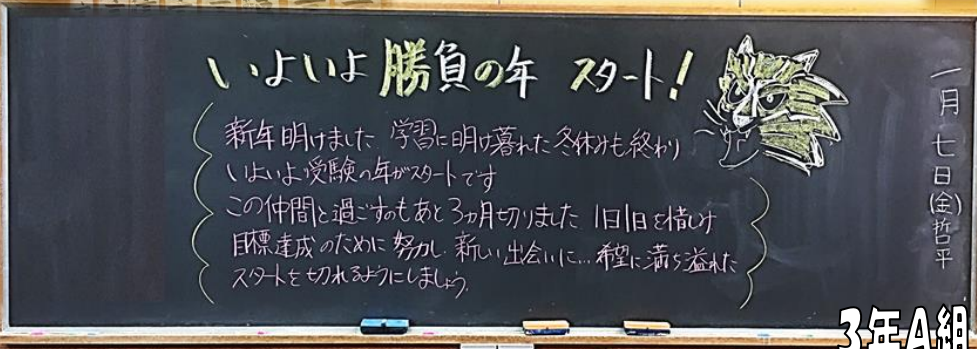 いよいよ勝負の年 スタート!
新年明けました 学習に明け暮れた冬休みも終わり
いよいよ受験の年がスタートです
この仲間と過ごすのもあと3ヵ月切りました 1日1日を惜しみ
目標達成のために努力し 新しい出会いに…希望に満ち溢れた
スタートを切れるようにしましょう。
一月七日(金)哲平
3年A組